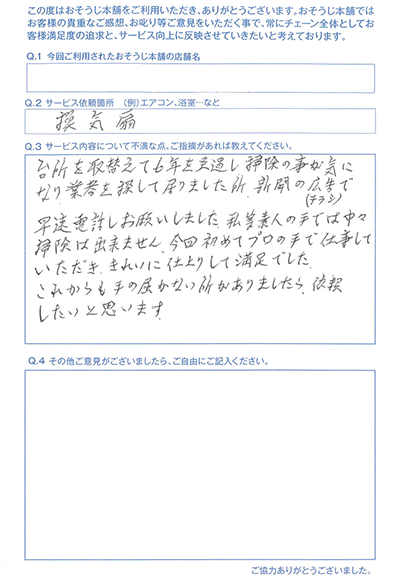 この度はおそうじ本舗をご利用いただき、ありがとうございます。おそうじ本舗では
お客様の貴重なご感想、お叱り等ご意見をいただく事で、常にチェーン全体としてお
客様満足度の追求と、サービス向上に反映させていきたいと考えております。
Q.1 今回ご利用されたおそうじ本舗の店舗名
Q.2 サービス依頼箇所 （例）エアコン、浴室…など
換気扇
Q.3 サービス内容について不満な点、ご指摘があれば教えてください。
台所を取替えて6年を経過し掃除の事が気に
なり業者を探して居りました所、新聞の広告で
(チラシ)
早速電話しお願いしました。私共素人の手では中々
掃除は出来ません。今回初めてプロの手で仕事して
いただき、きれいに仕上りして満足でした。
これからも手の届かない所がありましたら、依頼
したいと思います。
Q.4 その他ご意見がございましたら、ご自由にご記入ください。
ご協力ありがとうございました。